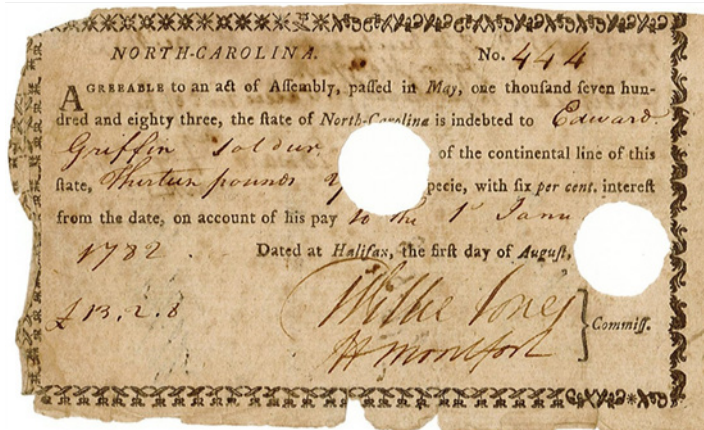 NORTH-CAROLINA. No. 444
AGREEABLE to an act of Aſſembly, paſſed in May, one thouſand ſeven hun-
dred and eighty three, the ſtate of North-Carolina is indebted to Edward
Griffin Soldier of the continental line of this
ſtate, Thirteen pounds pecie, with ſix per cent. intereſt
from the date, on account of his pay to the 1st Janu
1782. Dated at Halifax, the firſt day of Auguſt,
£13.2.8 Willie Jones
HMontfort Commiſſ.